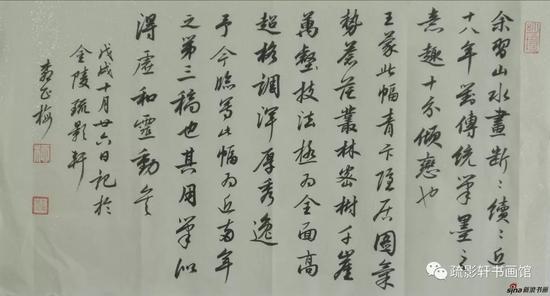 余習山水畫斷〻續〻近
十八年傳統筆墨之
意趣十分傾戀也
王蒙此幅青卞隱居圖氣
勢蒼茫叢林密樹千崖
萬壑技法極為全面高
超格調渾厚秀逸
予今臨寫此幅為近兩年
之第三稿也其用筆似
得虛和靈動矣
戊戌十月廿六日記於
金陵疏影軒
梅
疏影轩书画馆
sina 新浪书画